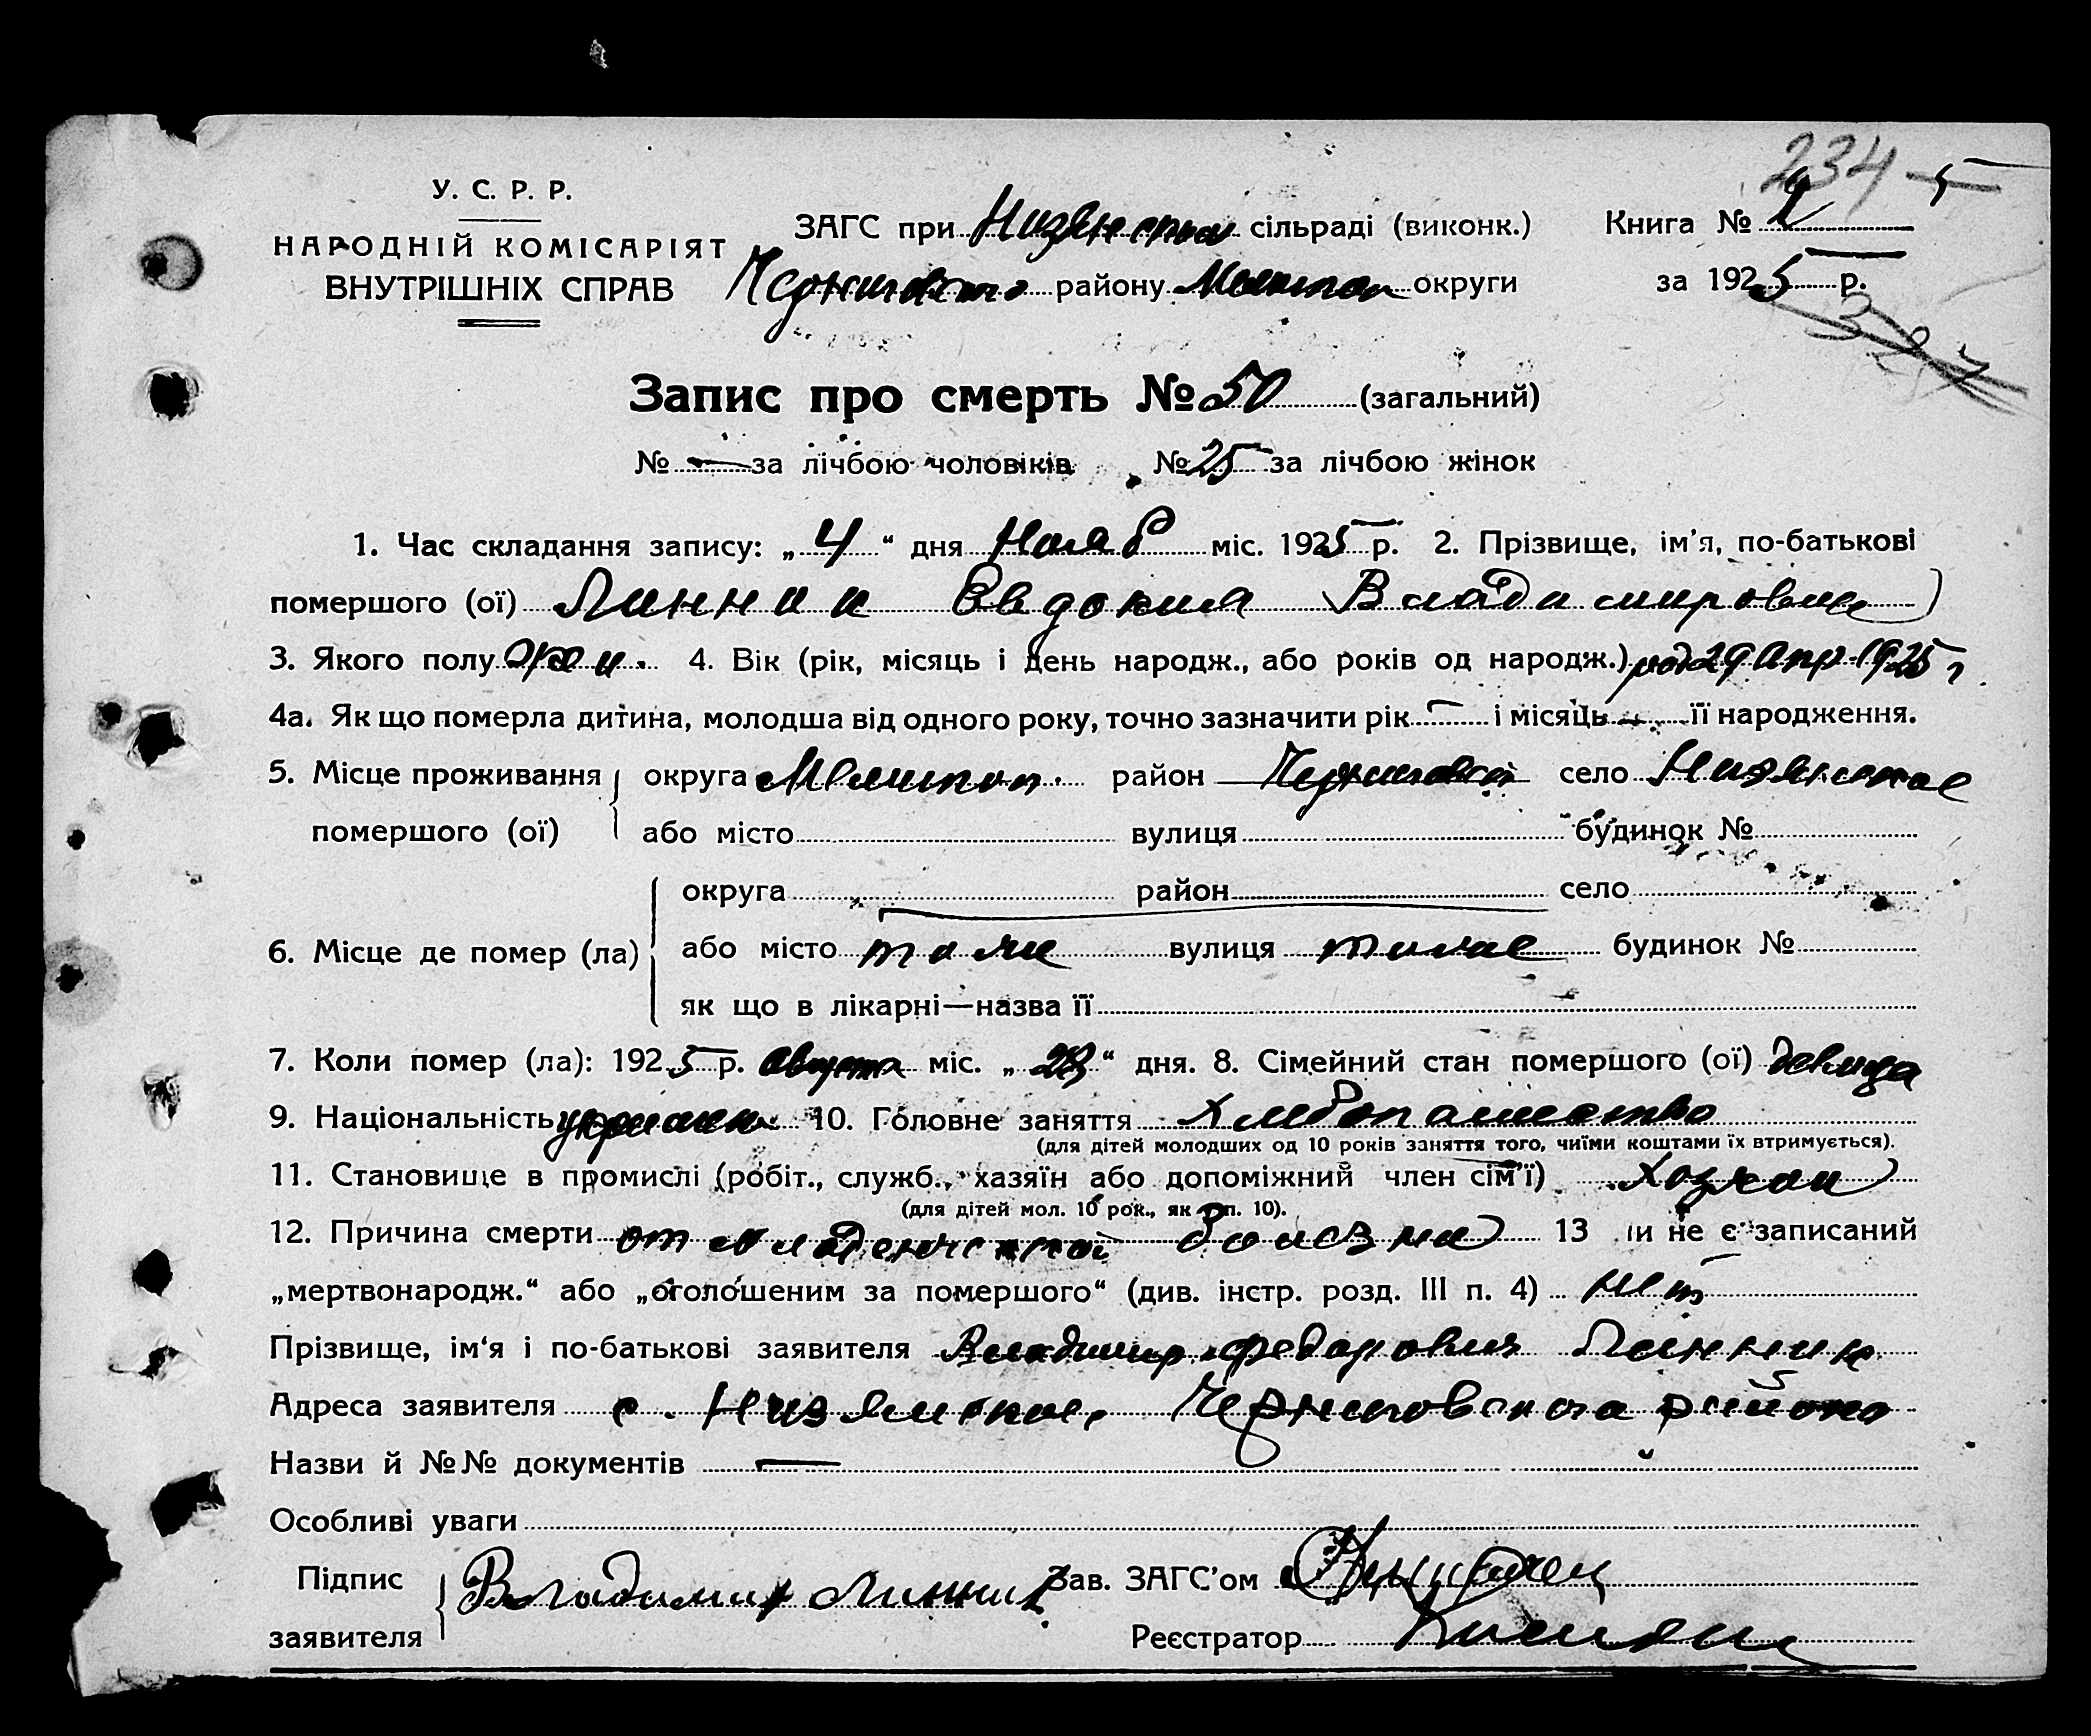 234 5
У. С. Р. Р.
НАРОДНІЙ КОМІСАРІЯТ
ВНУТРІШНІХ СПРАВ
ЗАГС при Низянской сільраді (виконк.) Книга №
Черниговского району Мелитоп округи за 1925 р.
327
Запис про смерть № 50 (загальний)
№ — за лічбою чоловіків № 25 за лічбою жінок
1. Час складання запису: „4“ дня Нояб міс. 1925 р. 2. Прізвище, ім’я, по-батькові
помершого (ої) Линник Евдокия Владимировна
3. Якого полу жен. 4. Вік (рік, місяць і день народж., або років од народж.) род 29 Апр 1925 г
4а. Як що померла дитина, молодша від одного року, точно зазначити рік — і місяць — її народження.
5. Місце проживання округа Мелитоп. район Черниговский село Низянское
помершого (ої) або місто вулиця будинок №
округа район село
6. Місце де помер (ла) або місто там вулиця также будинок №
як що в лікарні—назва її
7. Коли помер (ла): 1925 р. Августа міс. „28“ дня. 8. Сімейний стан помершого (ої) девица
9. Національність украинк. 10. Головне заняття Хлебопашество
(для дітей молодших од 10 років заняття того, чиїми коштами їх втримується).
11. Становище в промислі (робіт., служб., хазяїн або допоміжний член сім’ї) Хозяин
(для дітей мол. 10 рок., як п. 10).
12. Причина смерти от младенческой болезни 13 и не є записаний
„мертвонародж.“ або „оголошеним за помершого“ (див. інстр. розд. III п. 4) нет
Прізвище, ім‘я і по-батькові заявителя Владимир Федорович Линник
Адреса заявителя с. Низянское Черниговского района
Назви й №№ документів —
Особливі уваги
Підпис Владимир Линник Зав. ЗАГС’ом
заявителя Реєстратор